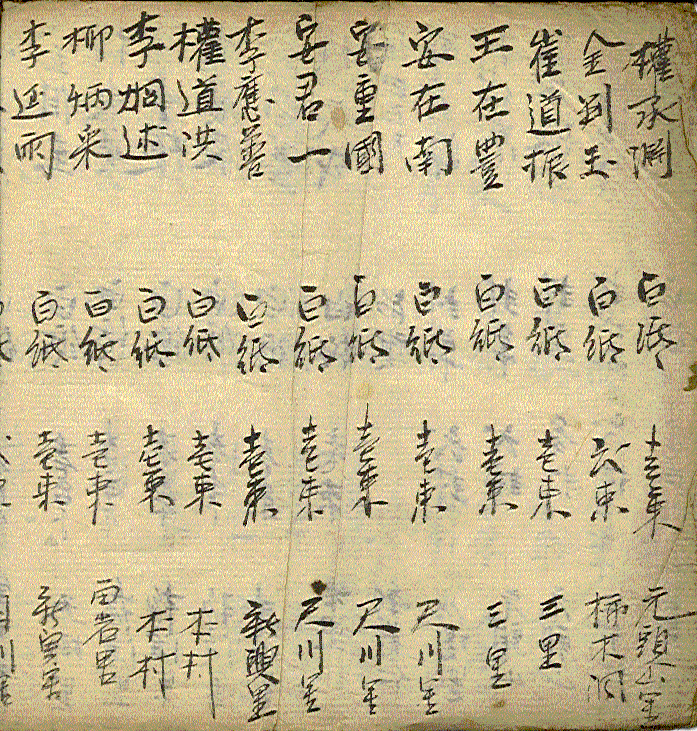 權承淵 白紙 壹束
金剡玉 白紙 六束 楠木洞
崔道振 白紙 壹束 三里
王在豐 白紙 壹束 三里
安在南 白紙 壹束 尺川里
安重國 白紙 壹束 尺川里
安君一 白紙 壹束 尺川里
李應善 白紙 壹束 新興里
權道洪 白紙 壹束 本村
李炯述 白紙 壹束 本村
柳炳采 白紙 壹束
李廷雨 白紙 壹束 新興里